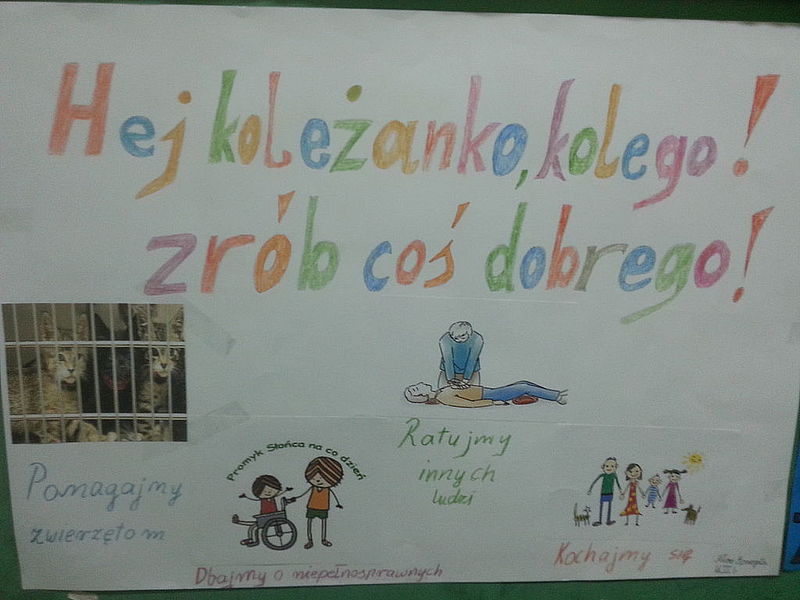 Hej koleżanko, kolego!
zrób coś dobrego!
Pomagajmy
zwierzętom
Promyk Słońca na co dzień
Dbajmy o niepełnosprawnych
Ratujmy
innych
ludzi
Kochajmy się